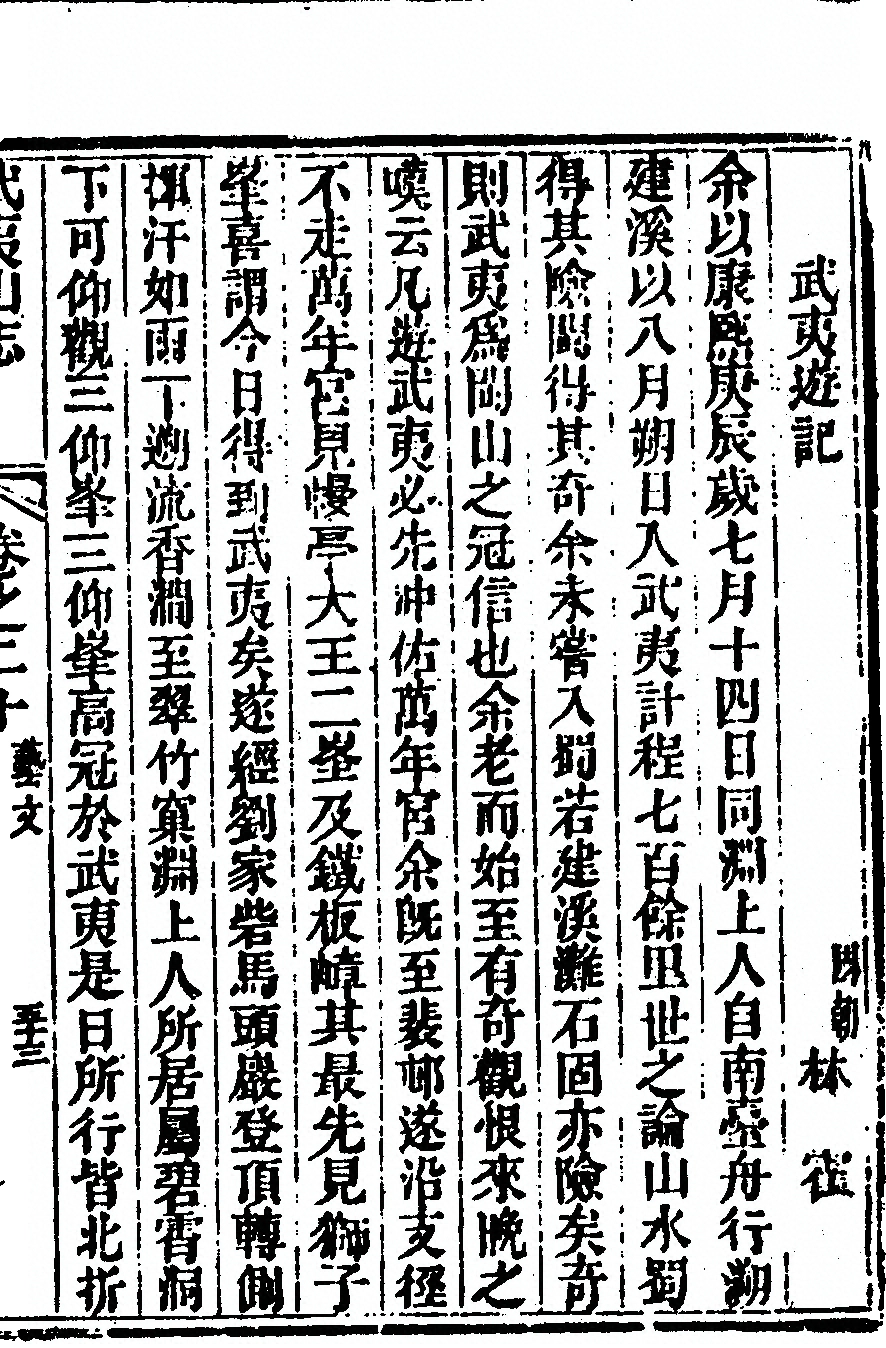 武夷遊記
國朝 林 霍
余以康熙庚辰歲七月十四日同淵上人自南臺舟行溯
建溪以八月朔日入武夷計程七百餘里世之論山水蜀
得其險閩得其奇余未嘗入蜀若建溪灘石固亦險矣奇
則武夷為閩山之冠信也余老而始至有奇觀恨來晚之
嘆云凡遊武夷必先冲佑萬年宮余既至裴邨遂沿支徑
不走萬年宮見幔亭大王二峯及鐵板嶂其最先見獅子
峯喜謂今日得到武夷矣遂經劉家砦馬頭巖登頂轉側
揮汗如雨下遡流香澗至翠竹窠淵上人所居屬碧霄洞
下可仰觀三仰峯三仰峯高冠於武夷是日所行皆北折
武夷山志 卷之二十 藝文 五十三